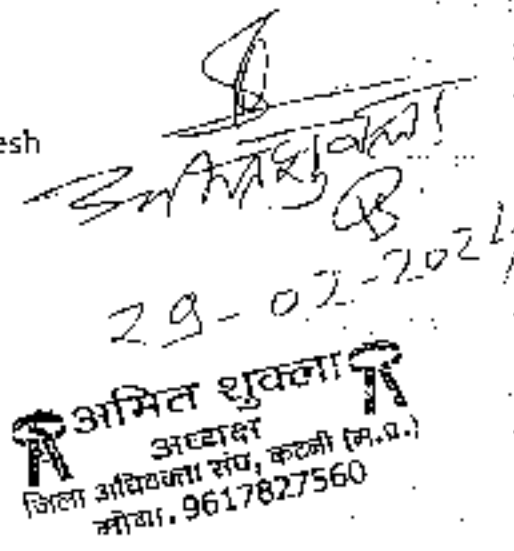 esh
अमित शुक्ला
29-02-2024
अमित शुक्ला
अध्यक्ष
जिला अधिवक्ता संघ, कटनी (म.प्र.)
मोबा. 9617827560